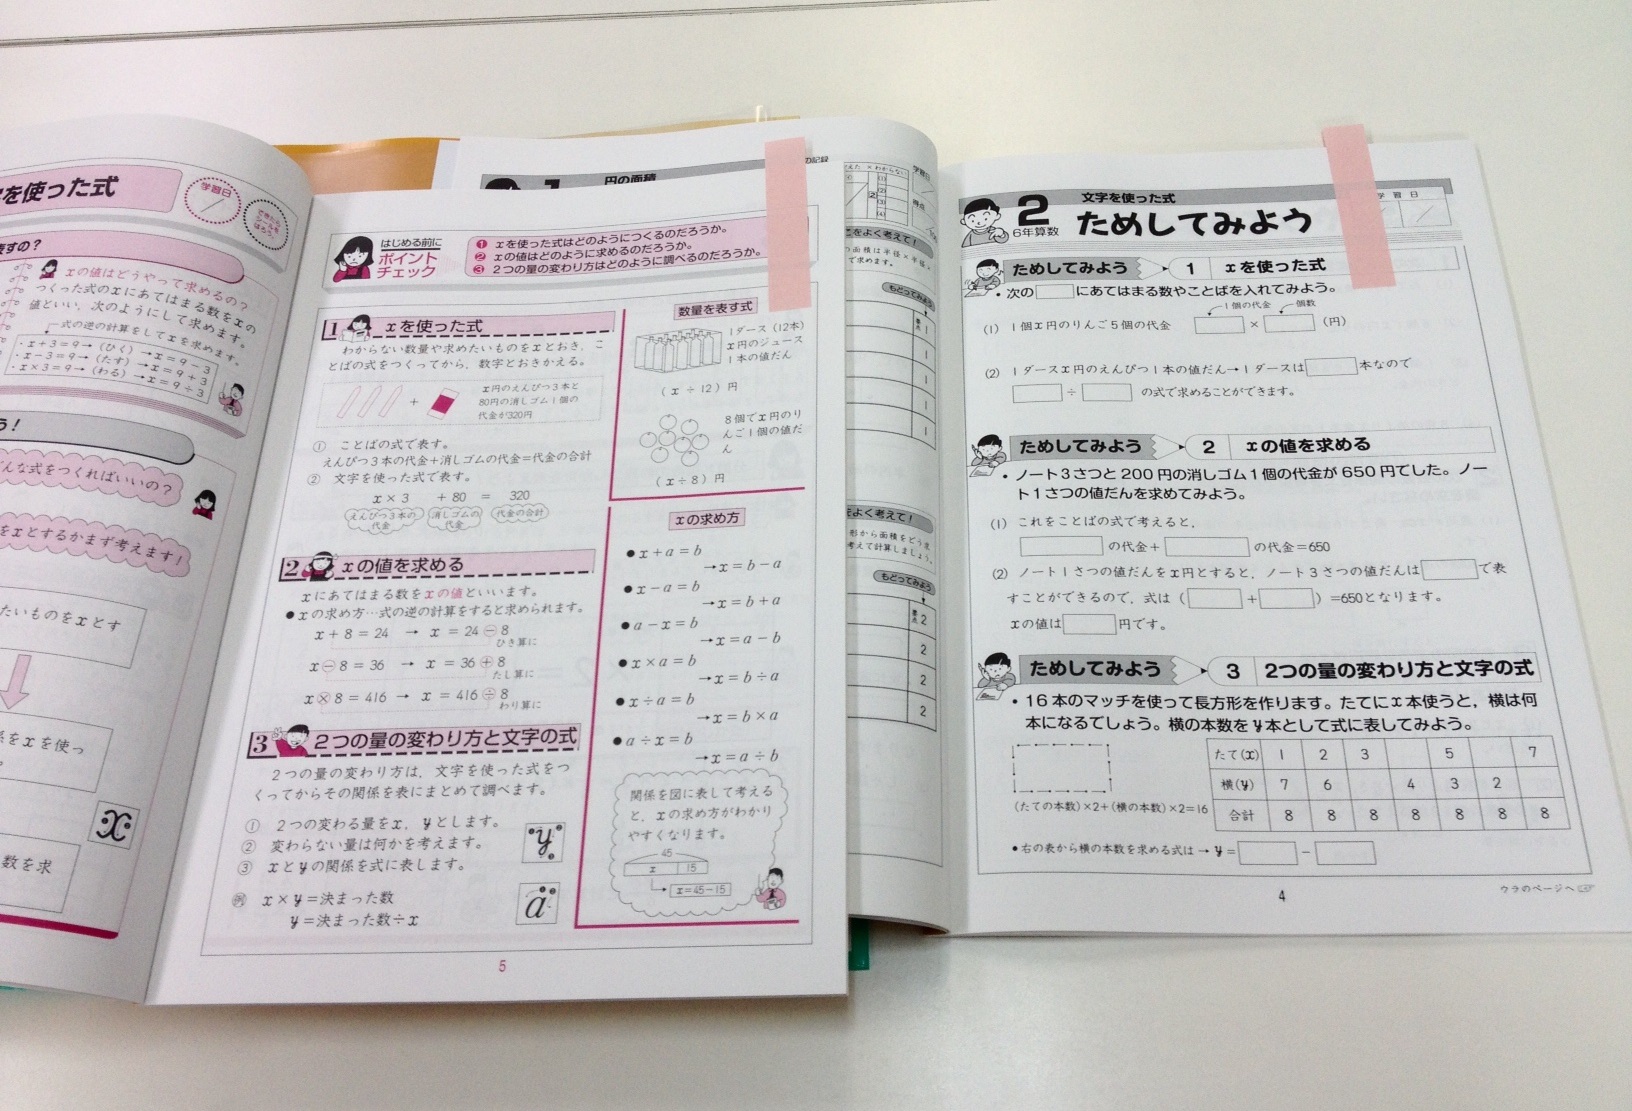 を使った式
学習日
できたら
シールを
はろう
表すの？
xの値はどうやって求めるの？
つくった式のxにあてはまる数をxの
値といい，次のようにして求めます。
式の逆の計算をしてxを求めます。
・x＋3＝9→（ひく）→x＝9－3
・x－3＝9→（たす）→x＝9＋3
・x×3＝9→（わる）→x＝9÷3
う！
んな式をつくればいいの？
をxとするかまず考えます！
たいものをxとす
係をxを使っ
。
x
数を求
はじめる前に
ポイント
チェック
❶ xを使った式はどのようにつくるのだろうか。
❷ xの値はどのように求めるのだろうか。
❸ 2つの量の変わり方はどのように調べるのだろうか。
1 xを使った式
わからない数量や求めたいものをxとおき，こ
とばの式をつくってから，数字とおきかえる。
＋
x円のえんぴつ3本と
80円の消しゴム1個の
代金が320円
① ことばの式で表す。
えんぴつ3本の代金＋消しゴムの代金＝代金の合計
② 文字を使った式で表す。
x×3 ＋80 ＝ 320
えんぴつ3本の代金 消しゴムの代金 代金の合計
2 xの値を求める
xにあてはまる数をxの値といいます。
●xの求め方…式の逆の計算をすると求められます。
x＋8＝24 → x＝24－8
ひき算に
x－8＝36 → x＝36＋8
たし算に
x×8＝416 → x＝416÷8
わり算に
3 2つの量の変わり方と文字の式
2つの量の変わり方は，文字を使った式をつ
くってからその関係を表にまとめて調べます。
① 2つの変わる量をx，yとします。
② 変わらない量は何かを考えます。
③ xとyの関係を式に表します。
例 x×y＝決まった数
y＝決まった数÷x
y
a
数量を表す式
1ダース（12本）
x円のジュース
1本の値だん
（x÷12）円
8個でx円のり
んご1個の値だ
ん
（x÷8）円
xの求め方
●x＋a＝b
→x＝b－a
●x－a＝b
→x＝b＋a
●a－x＝b
→x＝a－b
●x×a＝b
→x＝b÷a
●x÷a＝b
→x＝b×a
●a÷x＝b
→x＝a÷b
関係を図に表して考える
と，xの求め方がわかり
やすくなります。
45
x 15
x＝45－15
5
1 円の面積
の記録
学習日
得点
こをよく考えて！
の面積は半径×半径×
で求めます。
もどってみよう
要点 1
1
1
1
1
をよく考えて！
形から面積をどう求
考えて計算しましょう。
もどってみよう
要点 2
2
2
2
2
6年算数
文字を使った式
ためしてみよう
学習日
ためしてみよう 1 xを使った式
・次の□にあてはまる数やことばを入れてみよう。
1個の代金 個数
(1) 1個x円のりんご5個の代金 □×□（円）
(2) 1ダースx円のえんぴつ1本の値だん→1ダースは□本なので
□÷□の式で求めることができます。
ためしてみよう 2 xの値を求める
・ノート3さつと200円の消しゴム1個の代金が650円でした。ノー
ト1さつの値だんを求めてみよう。
(1) これをことばの式で考えると，
□の代金＋□の代金＝650
(2) ノート1さつの値だんをx円とすると，ノート3さつの値だんは□で表
すことができるので，式は（□＋□）＝650となります。
xの値は□円です。
ためしてみよう 3 2つの量の変わり方と文字の式
・16本のマッチを使って長方形を作ります。たてにx本使うと，横は何
本になるでしょう。横の本数をy本として式に表してみよう。
(たての本数)×2＋(横の本数)×2＝16
たて(x) 1 2 3 5 7
横(y) 7 6 4 3 2
合計 8 8 8 8 8 8 8
・右の表から横の本数を求める式は→y＝□－□
4
ウラのページへ